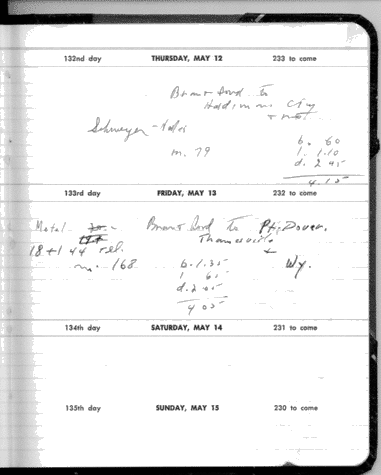 132nd day THURSDAY, MAY 12 233 to come
Brantford to
City
m. 79
b. 60
l. 1.10
d. 2 45
4.15
133rd day FRIDAY, MAY 13 232 to come
Motel Brantford to Pt. Dover,
Thamesville +
18+1 44 tel. Wy.
m. 168 b. 1.35
l 65
d. 2 05
4 05
134th day SATURDAY, MAY 14 231 to come
135th day SUNDAY, MAY 15 230 to come